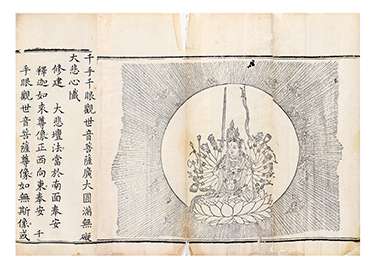 千手千眼觀世音菩薩廣大圓滿無礙
大悲心懺
修建　大悲壇法當於南面奉安
釋迦如來尊像正西向東奉安　千
手眼觀世音菩薩尊像如無斯像或